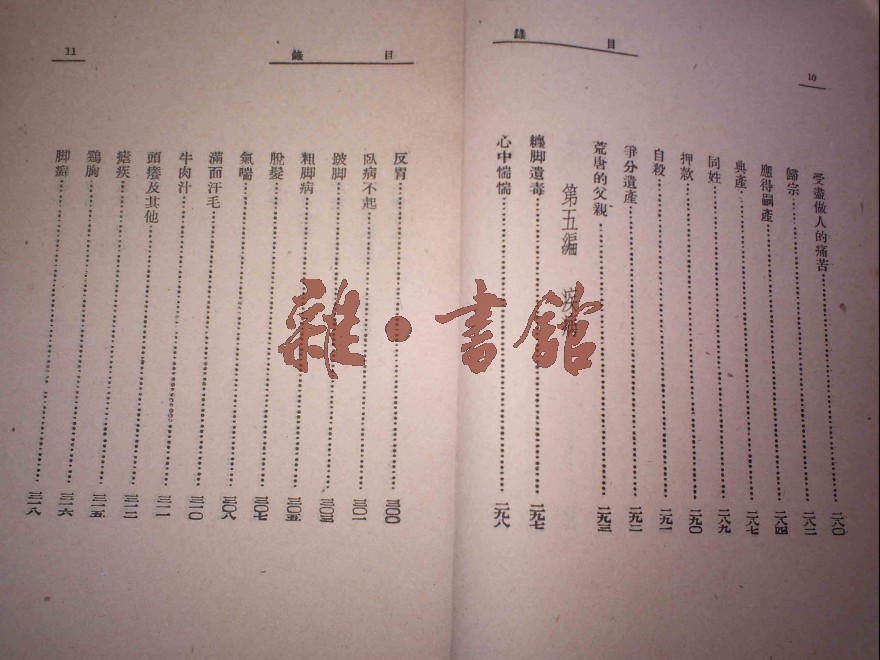 目 錄
10
受盡做人的痛苦……二八〇
歸宗……二八二
應得嗣產……二八四
典產……二八七
同姓……二八九
押款……二九〇
自殺……二九一
爭分遺產……二九二
荒唐的父親……二九三
第五編 疾病
纏脚遺毒……二九七
心中惴惴……二九八
目 錄
11
反胃……三〇〇
臥病不起……三〇一
跛脚……三〇三
粗脚病……三〇五
脫髮……三〇七
氣喘……三〇八
滿面汗毛……三一〇
牛肉汁……三一一
頭癢及其他……三一二
瘧疾……三一五
鷄胸……三一六
脚癬……三一八
雜·書館